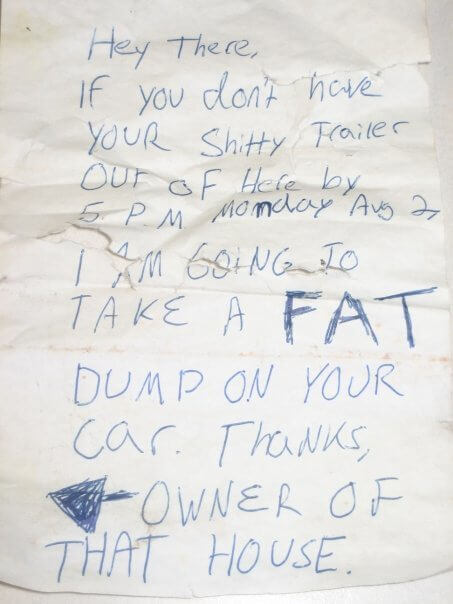 Hey There,
IF you don't have
YOUR Shitty Trailer
OUT OF Here by
5 P.M Monday Aug 2,
I AM GOING TO
TAKE A FAT
DUMP ON YOUR
Car. ThaNKS,
OWNER OF
THAT HOUSE.